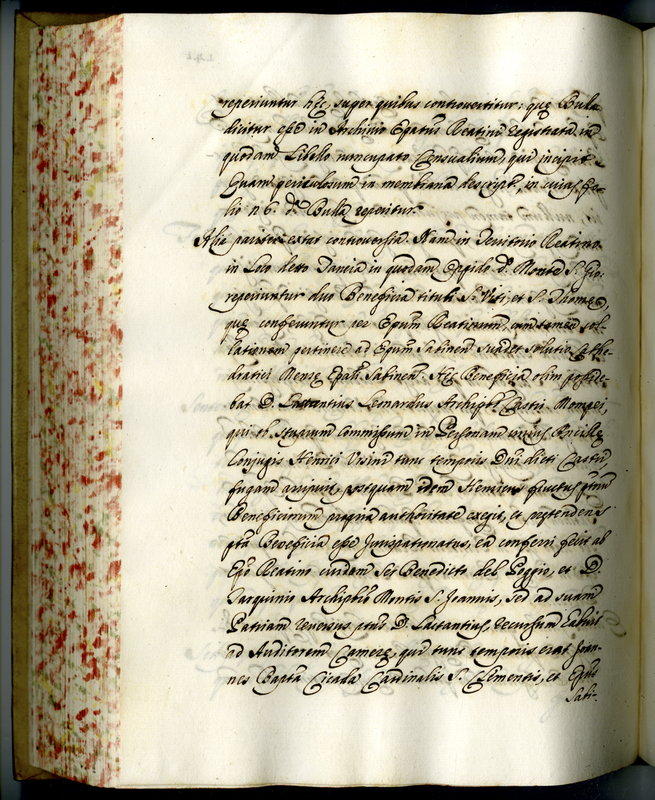 reperiuntur hęc, super quibus controvertitur: quę Bulla
dicitur esse in Archivio Epatus Reatini registrata in
quodam Libello nuncupato Censualium, qui incipit
Quam periculosum in membrana descript., in cuius fo-
lio n 6. da Bulla reperitur.
Alia pariter extat controversia. Nam in Territorio Reatino
in Loco decto Tancia in quodam Oppido de Monte S. Jio:
reperiuntur duo Beneficia tituli Sti Viti, et S. Thomę,
quę conferuntur per Epum Reatinum, cum tamen col-
lationem pertinere ad Epum Sabinen suadet solutio Cathe-
dratici Mensę Epali Sabinen. Hęc Beneficia olim posside-
bat D. Lactantius Leonardus Archipbr Castri Mompei,
qui ob stuprum commissum in Personam Ancillę
Conjugis Henrici Ursini tunc temporis Dni dicti Castri
fugam arripuit, postquam idem Henricus fructus ptorum
Beneficiorum propria authoritate exegit, et pretendens
pta Beneficia esse Jurispatronatus, ea conferri fecit ab
Epo Reatino cuidam Ser Benedicto del Poggio, et D.
Tarquinio Archipbro Montis S. Joannis, sed ad suam
Patriam reversus ptus D. Lactantius, recursum habuit
ad Auditorem Camerę, qui tunc temporis erat Joan-
nes Bapta Cicada Cardinalis S. Clementis, et Epus
Sabi-